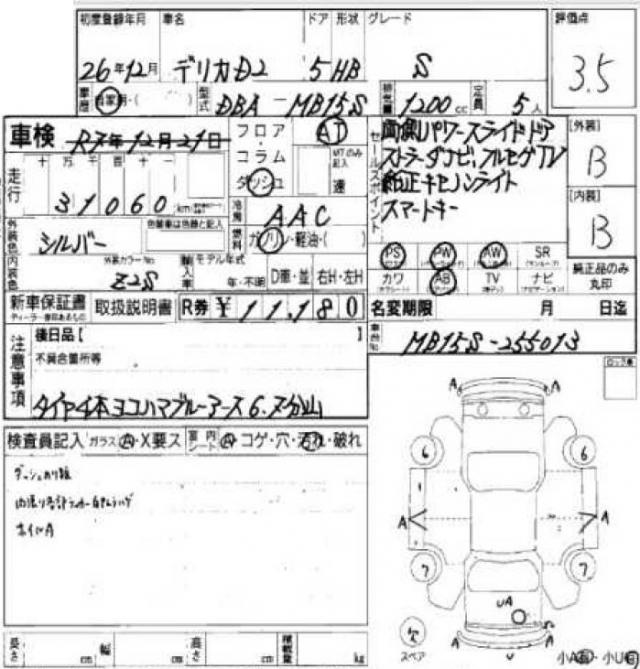 初度登録年月 車名 ドア 形状 グレード 評価点
26年12月 デリカD2 5 HB S 3.5
車歴 自家用・( ) 型式 DBA-MB15S 排気量 1200cc 定員 5人
車検 R7年12月21日 フロア・コラム ダッシュ AT MTのみ記入 速
セールスポイント
両側パワースライドドア
ストラーダナビ、フルセグTV
純正キセノンライト
スマートキー
[外装] B
[内装] B
走行 十 万 千 百 十 一
31060 km
冷房 AAC
燃料 ガソリン・軽油・( )
外装色 シルバー 色替車は色番と記入
内装色 外装カラーNo Z2S
輸入車 モデル年式 年・不明 D車・並 右H・左H
PS PW AW SR
カワ AB TV ナビ
純正品のみ丸印
新車保証書 取扱説明書 R券 ¥11,180
ディーラー捺印あるもの
名変期限 月 日迄
車台No MB15S-255013
注意事項
後日品【 】
不具合箇所等
タイヤ4本ヨコハマブルーアース6.7分山
ロック車
検査員記入 ガラス A・X要ス 室内シート A・コゲ・穴・汚れ・破れ
ホイルA
A A
6 6
A A
7 7
UA
スペア
長さ cm 幅 cm 高さ cm 積載量 kg
小A・小U